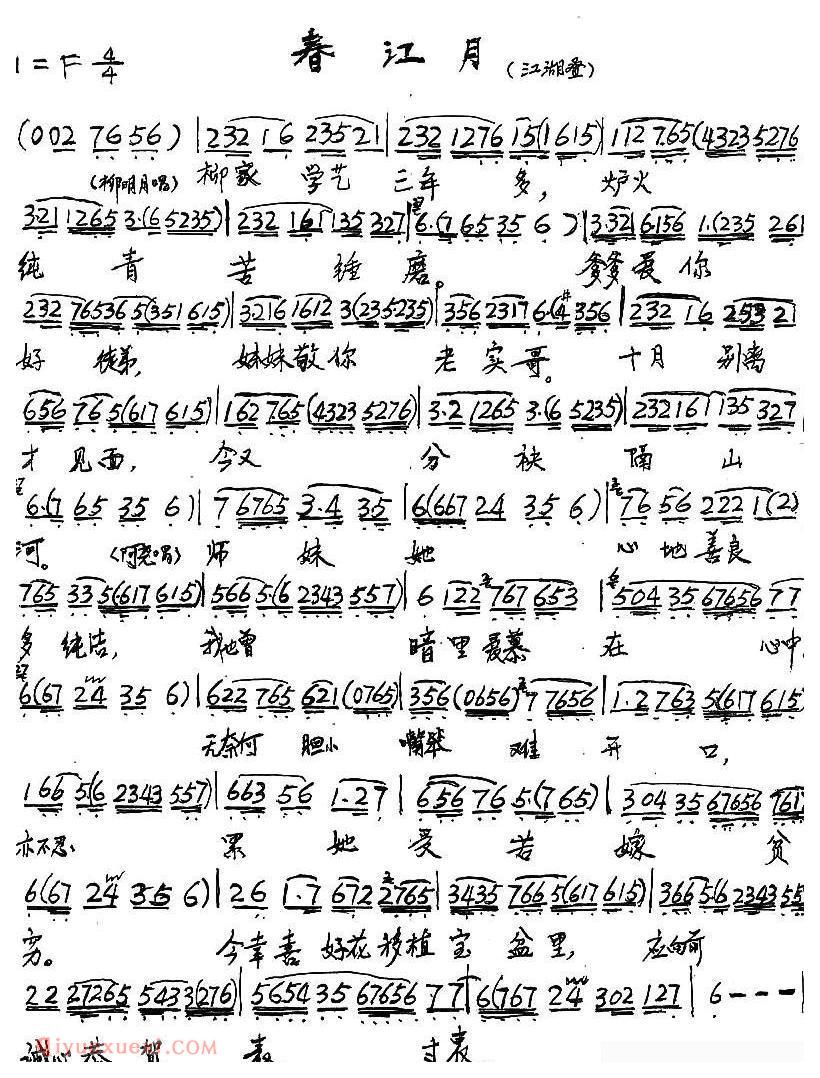 春江月 (江湖叠)
1=F 4/4
(002 7656) | 232 16 23521 | 232 1276 15(1615) | 112 765(4323 5276
(柳明月唱) 柳家 学艺 三年 多, 炉火
3·21 1265 3·(6 5235) | 232 161 135 327 | 6·(7 65 35 6) | 3·32 6156 1·(235 261
纯青苦锤磨。 爹爹爱你
232 765365(351 615) | 3216 1612 3(235235) | 356 2317 6·(#4 356 | 232 16 253 21
好徒弟, 妹妹敬你 老实哥。 十月 别离
656 765(617 615) | 162 765(4323 5276) | 3·2 1265 3·(6 5235) | 232161 135 327
才见面, 今又 分袂隔山
6·(7 65 35 6) | 76765 3·4 35 | 6(667 24 35 6) | 76 56 2221(2)
河。 (阿尧唱) 师妹她 心地善良
765 335(617615) | 5665·(6 2343 557) | 6 122 767 653 | 504 35 67656 77
多纯洁, 我也曾 暗里爱慕在 心中
6(67 24 35 6) | 622 765 621(0765) | 356(0656) 77656 | 1·2 763 5(617 615)
无奈何 胆小 嘴笨 难开口,
166 5(6 2343 557) | 663 56 1·27 | 656 76 5·(765) | 304 35 67656 7617
亦不忍 累她受苦嫁贫
6(67 24 35 6) | 26 1·7 672 2765 | 3435 7665(617615) | 3665(6 2343 55
穷。 今幸喜 好花移植宝盆里, 应向前
22 27265 5433(276) | 5654 35 67656 77 | 6(767 24 302 127 | 6 - - - |
诚心恭